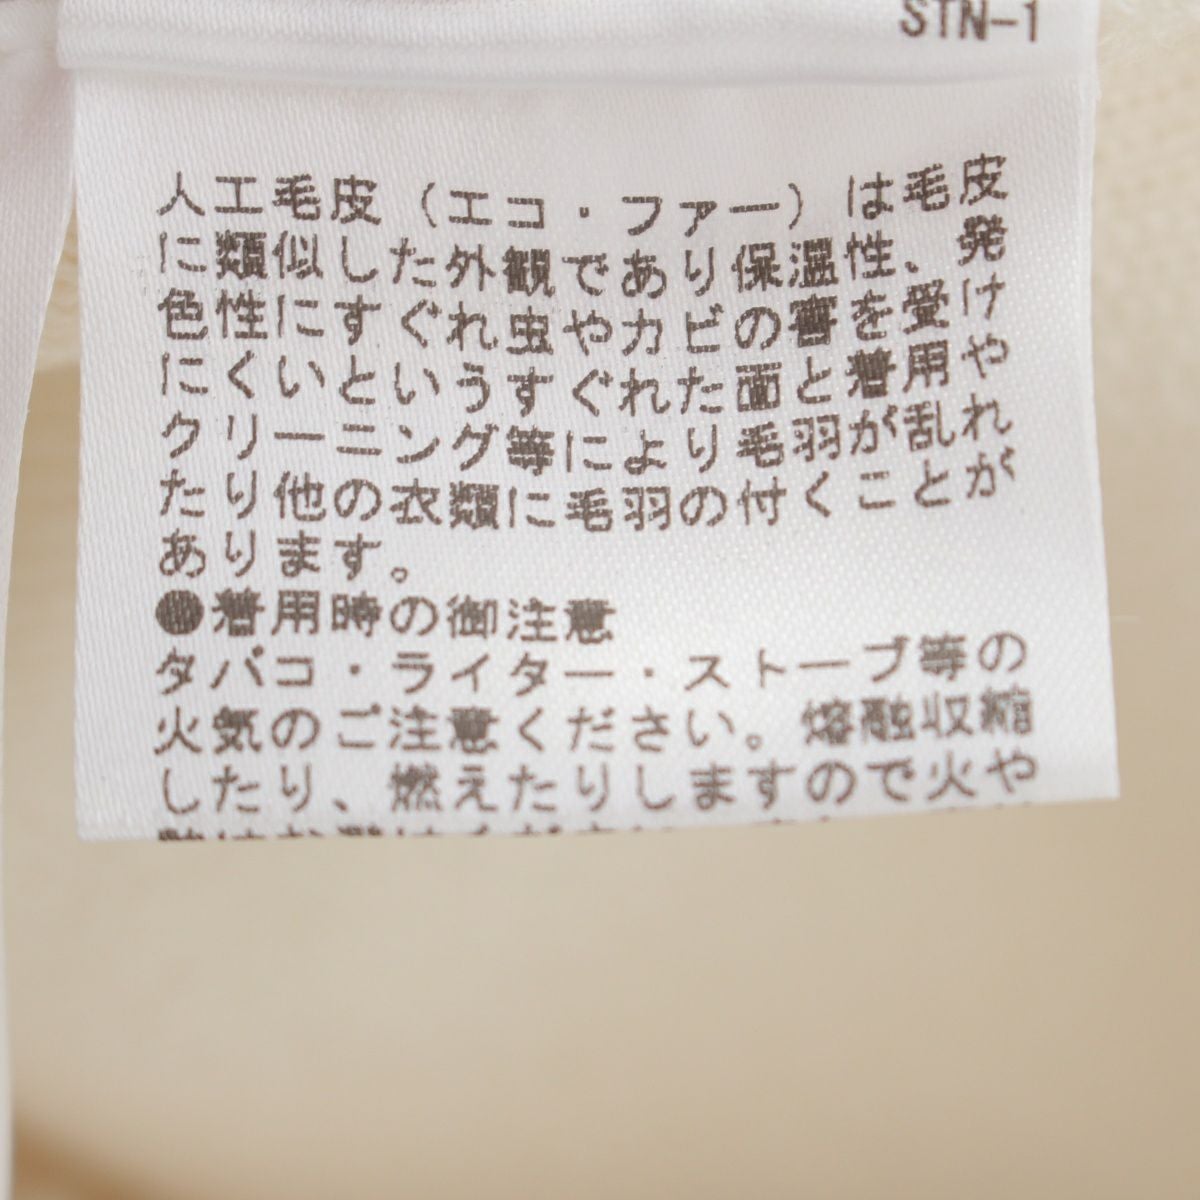 STN-1
人工毛皮（エコ・ファー）は毛皮
に類似した外観であり保温性、発
色性にすぐれ虫やカビの害を受け
にくいというすぐれた面と着用や
クリーニング等により毛羽が乱れ
たり他の衣類に毛羽の付くことが
あります。
●着用時の御注意
タバコ・ライター・ストーブ等の
火気のご注意ください。熔融収縮
したり、燃えたりしますので火や